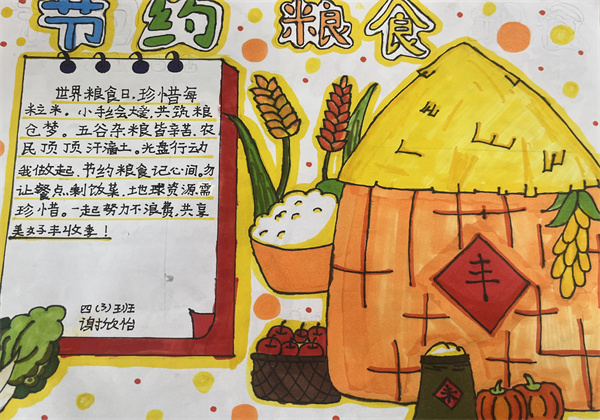 节约粮食
世界粮食日,珍惜每
粒米。小手绘大爱,共筑粮
仓梦。五谷杂粮皆辛苦,农
民顶顶汗满土。光盘行动
我做起,节约粮食记心间。勿
让餐点剩饭菜,地球资源需
珍惜。一起努力不浪费,共享
美好丰收季!
四(3)班
谢欣怡
丰
米